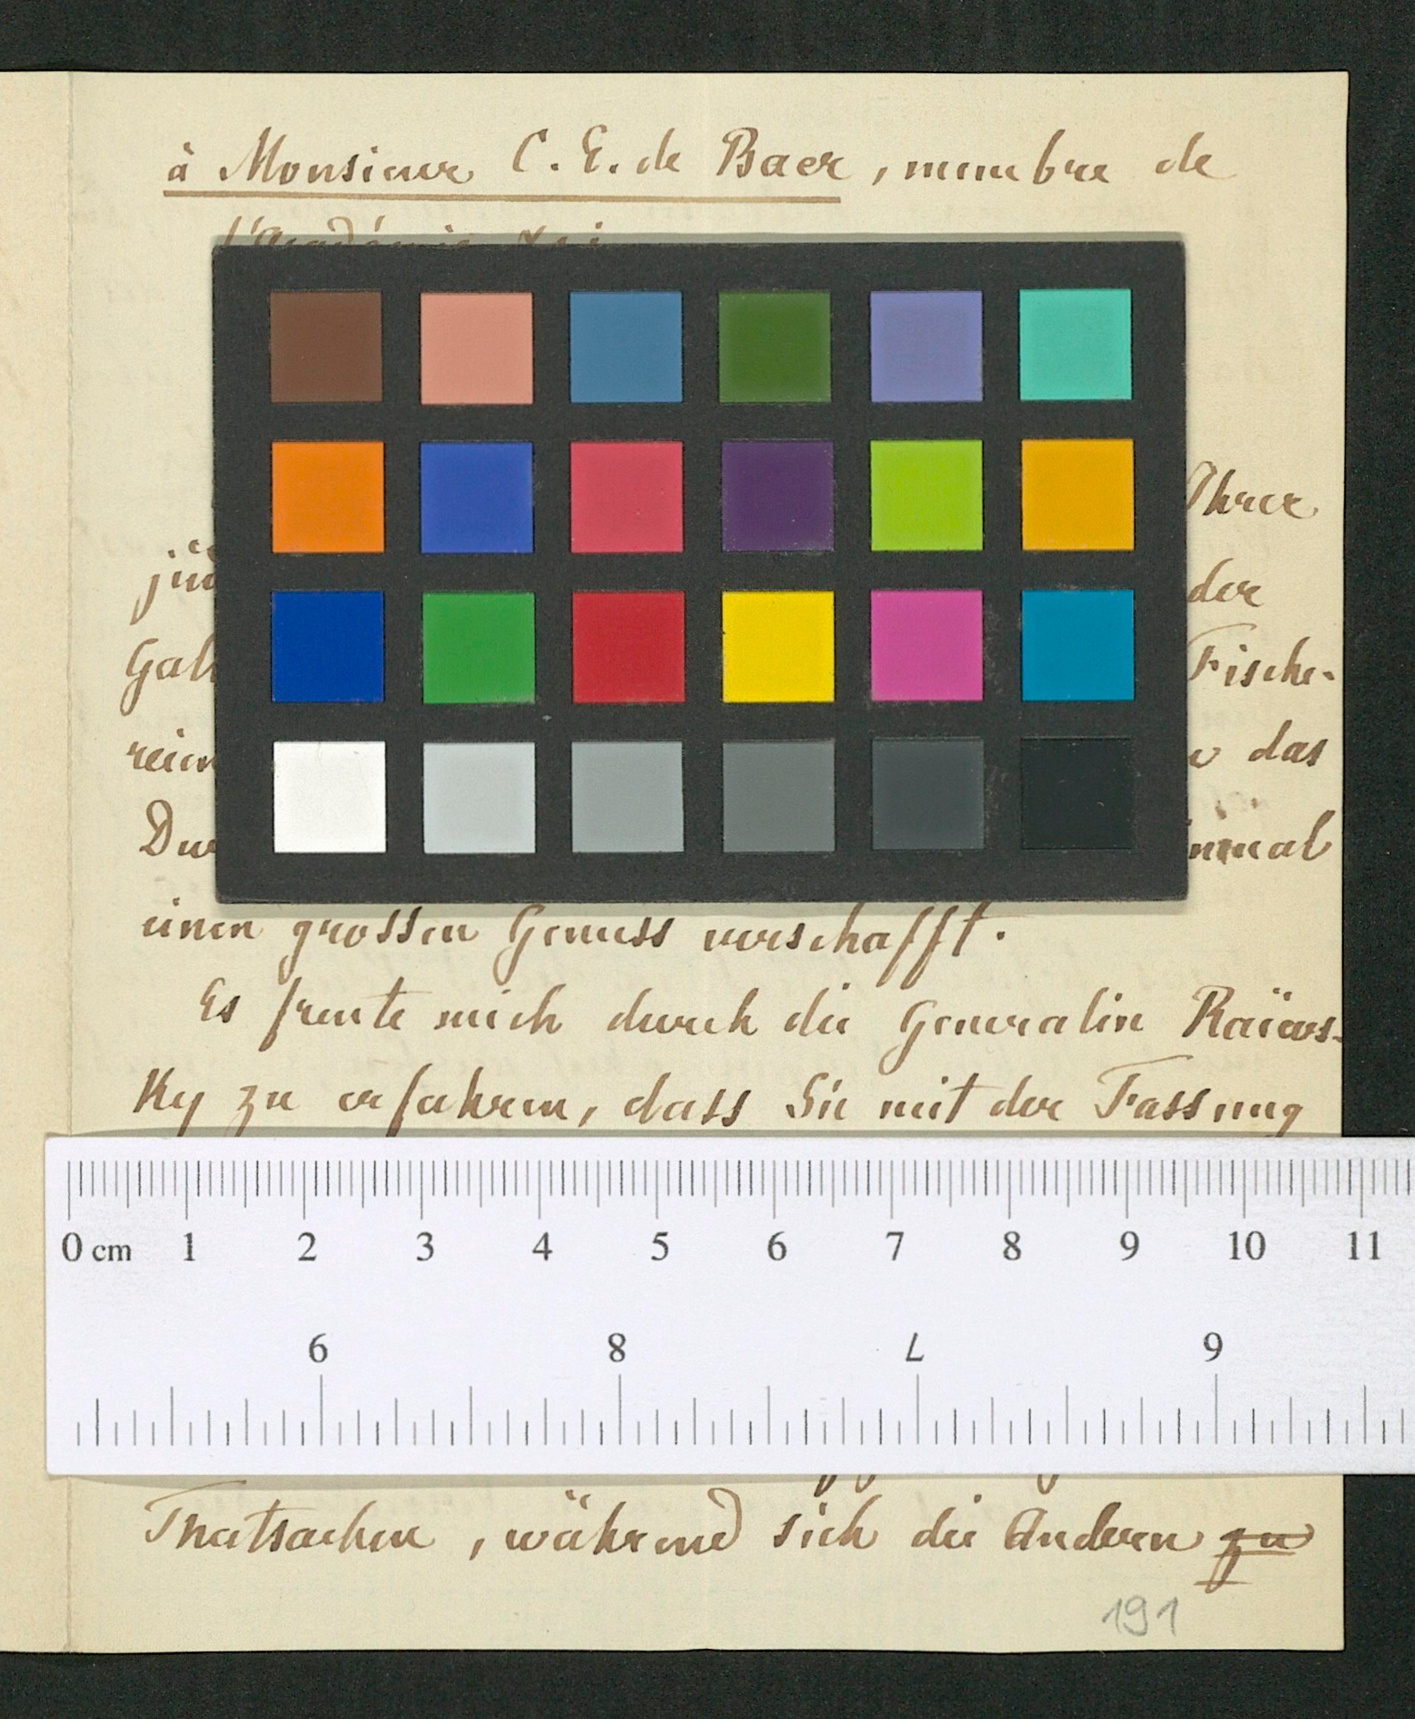 à Monsieur C. E. de Baer, membre de
l'Académie
Ihrer
der
Fische-
das
einen grossen Genuss verschafft.
Es freute mich durch die Generalin Raïews-
ky zu erfahren, dass Sie mit der Fassung
0 cm 1 2 3 4 5 6 7 8 9 10 11
9 8 7 6
Thatsachen, während sich die Andern zu
191